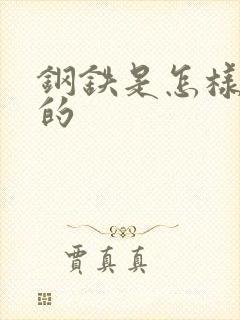 鋼鉄是怎樣
的
賈真真